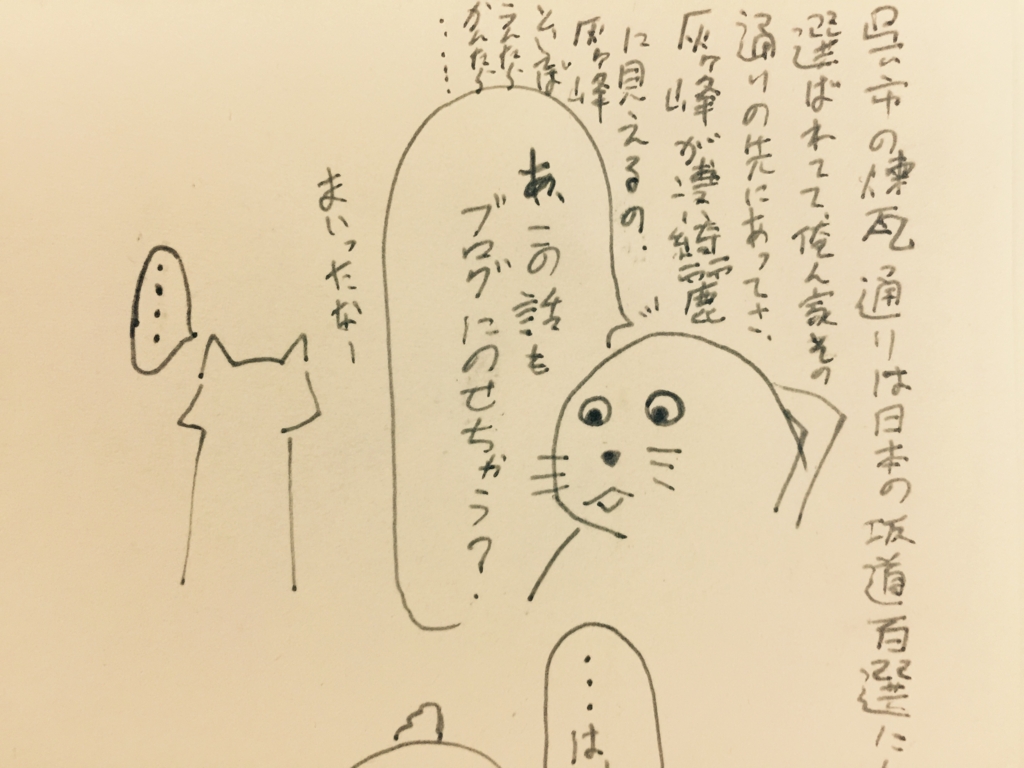 呉市の煉瓦通りは日本の坂道百選に
選ばれてて、俺ん家その
通りの先にあってさ、
灰ヶ峰が凄い綺麗
に見えるの.
灰ヶ峰
といえば
かんたら
……
あ、この話も
ブログにのせちゃう?.
まいったなー
....
...は、